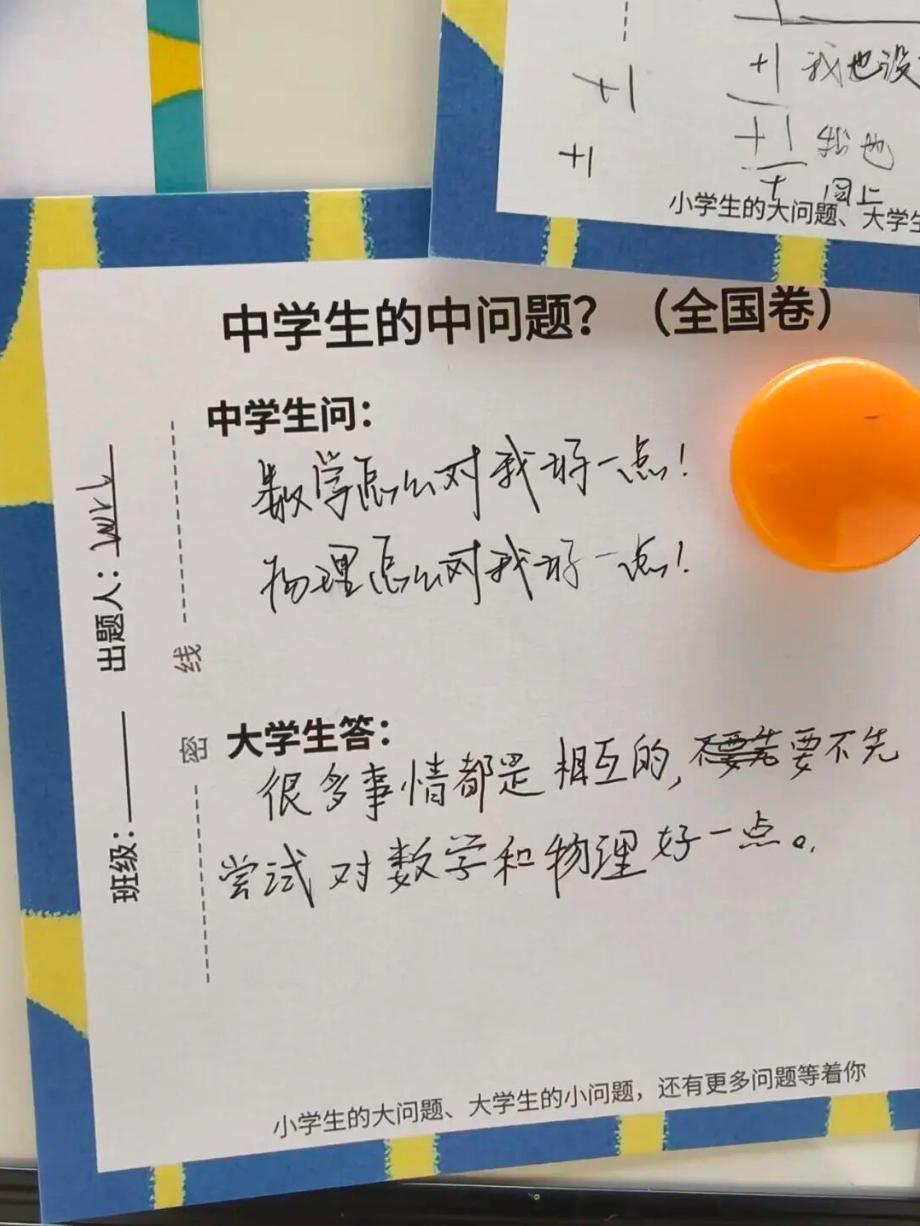 +1
+1 我也没
+1
+1 我也
+ 同上
小学生的大问题、大学生
中学生的中问题？（全国卷）
中学生问：
数学怎么对我好一点！
物理怎么对我好一点！
出题人：
线
密
班级：
大学生答：
很多事情都是相互的，不要先要不先
尝试对数学和物理好一点。
小学生的大问题、大学生的小问题，还有更多问题等着你